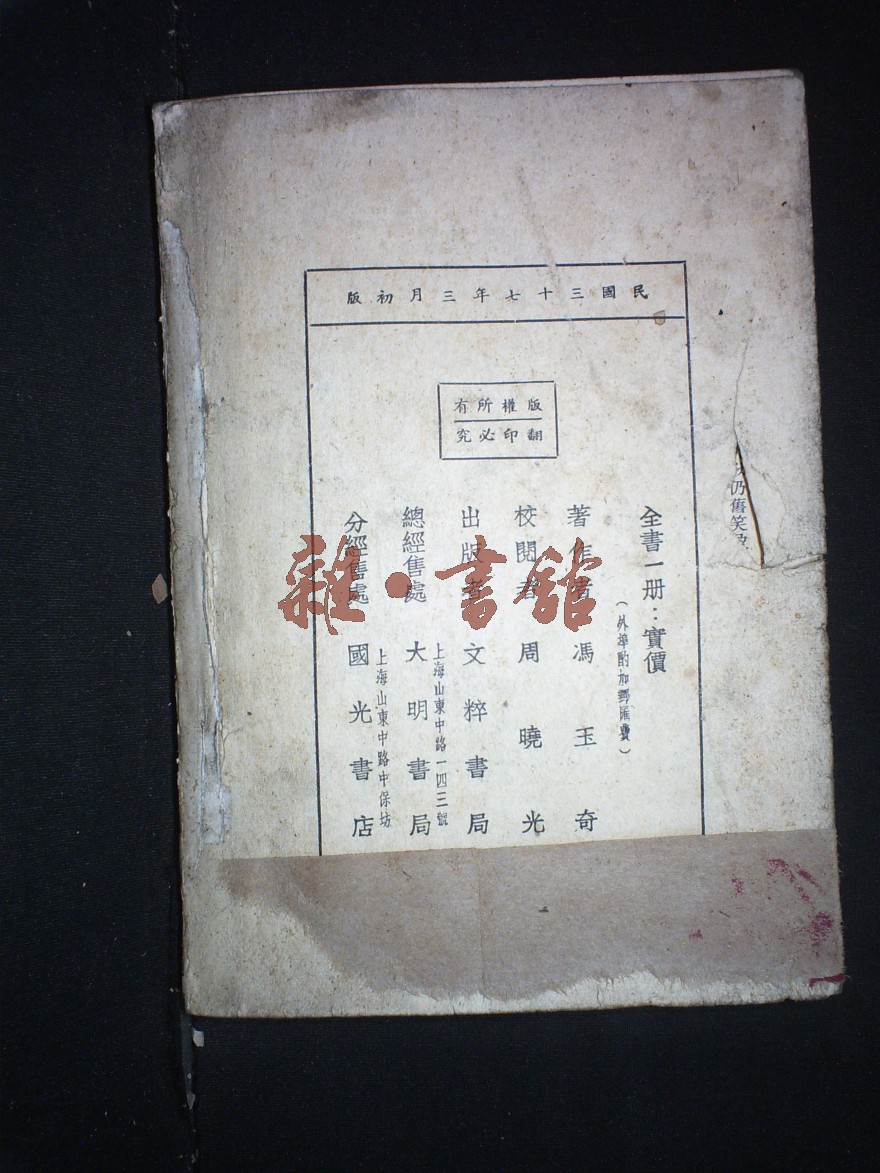 民國三十七年三月初版
版權所有
翻印必究
全書一册：實價
（外埠酌加郵匯費）
著作者 馮玉奇
校閱者 周曉光
出版者 文粹書局
上海山東中路一四三號
總經售處 大明書局
上海山東中路中保坊
分經售處 國光書店
仍舊笑
雜·書館